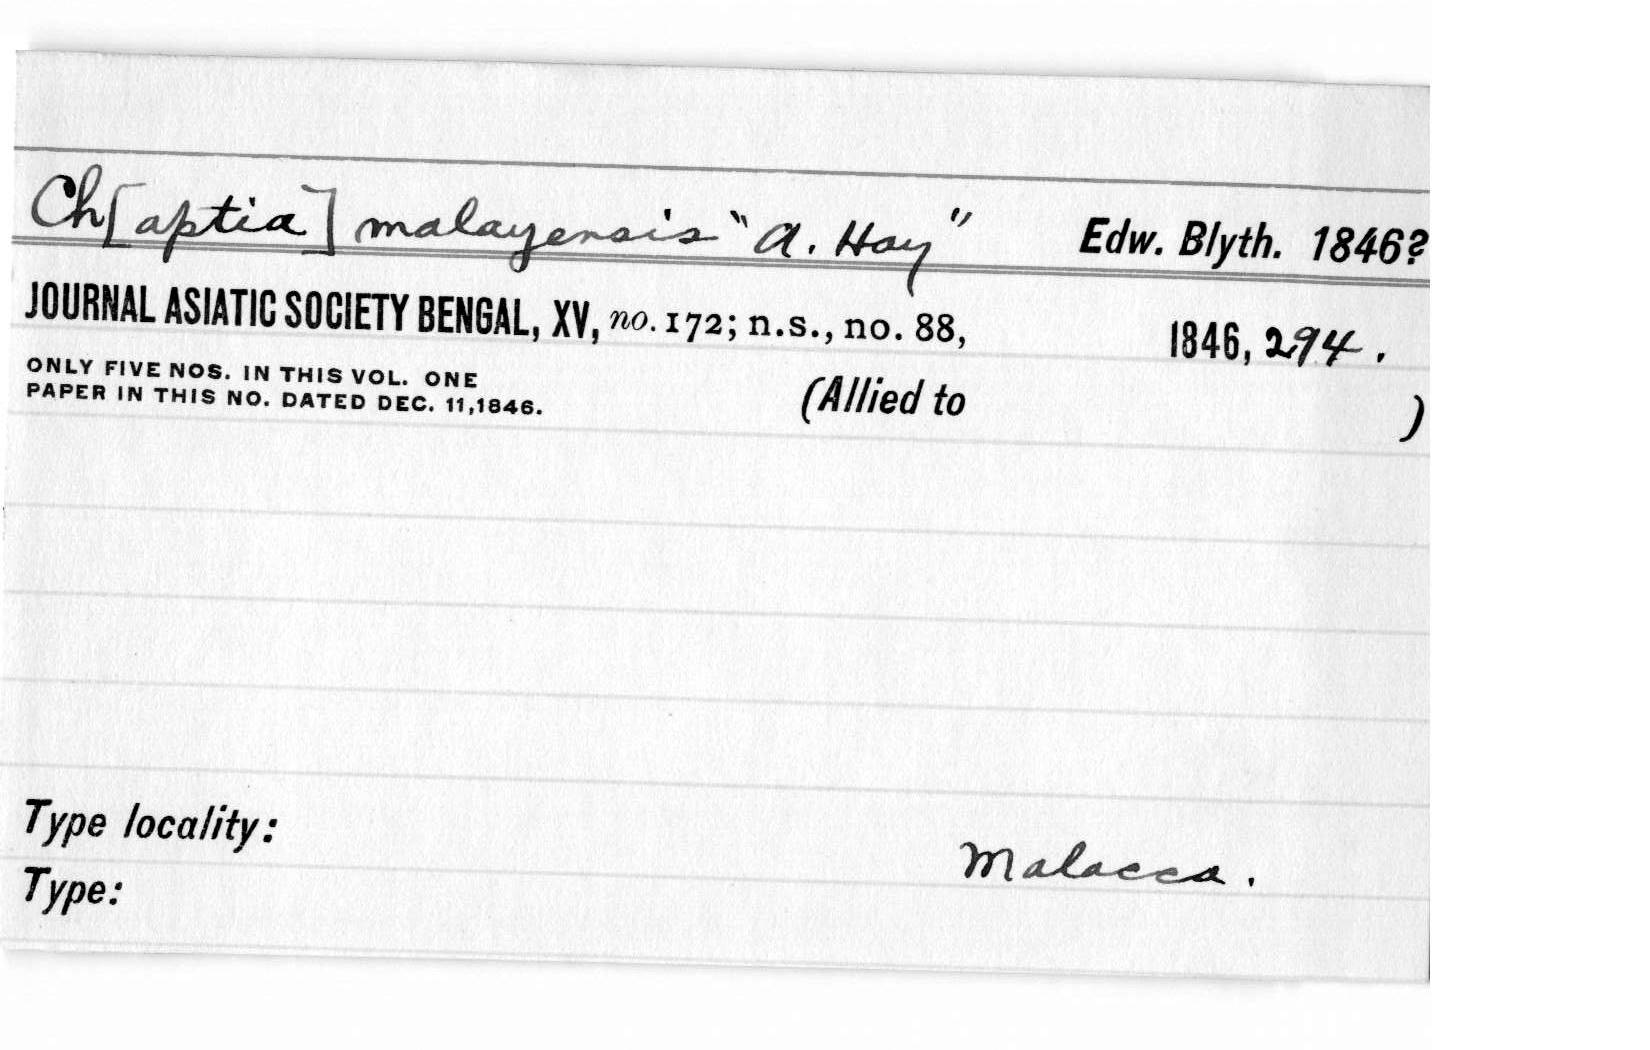 Ch[aptia] malayensis "A. Hay" Edw. Blyth. 1846?
JOURNAL ASIATIC SOCIETY BENGAL, XV, no. 172; n.s., no. 88, 1846, 294.
ONLY FIVE NOS. IN THIS VOL. ONE
PAPER IN THIS NO. DATED DEC. 11,1846.
(Allied to )
Type locality:
Malacca.
Type: